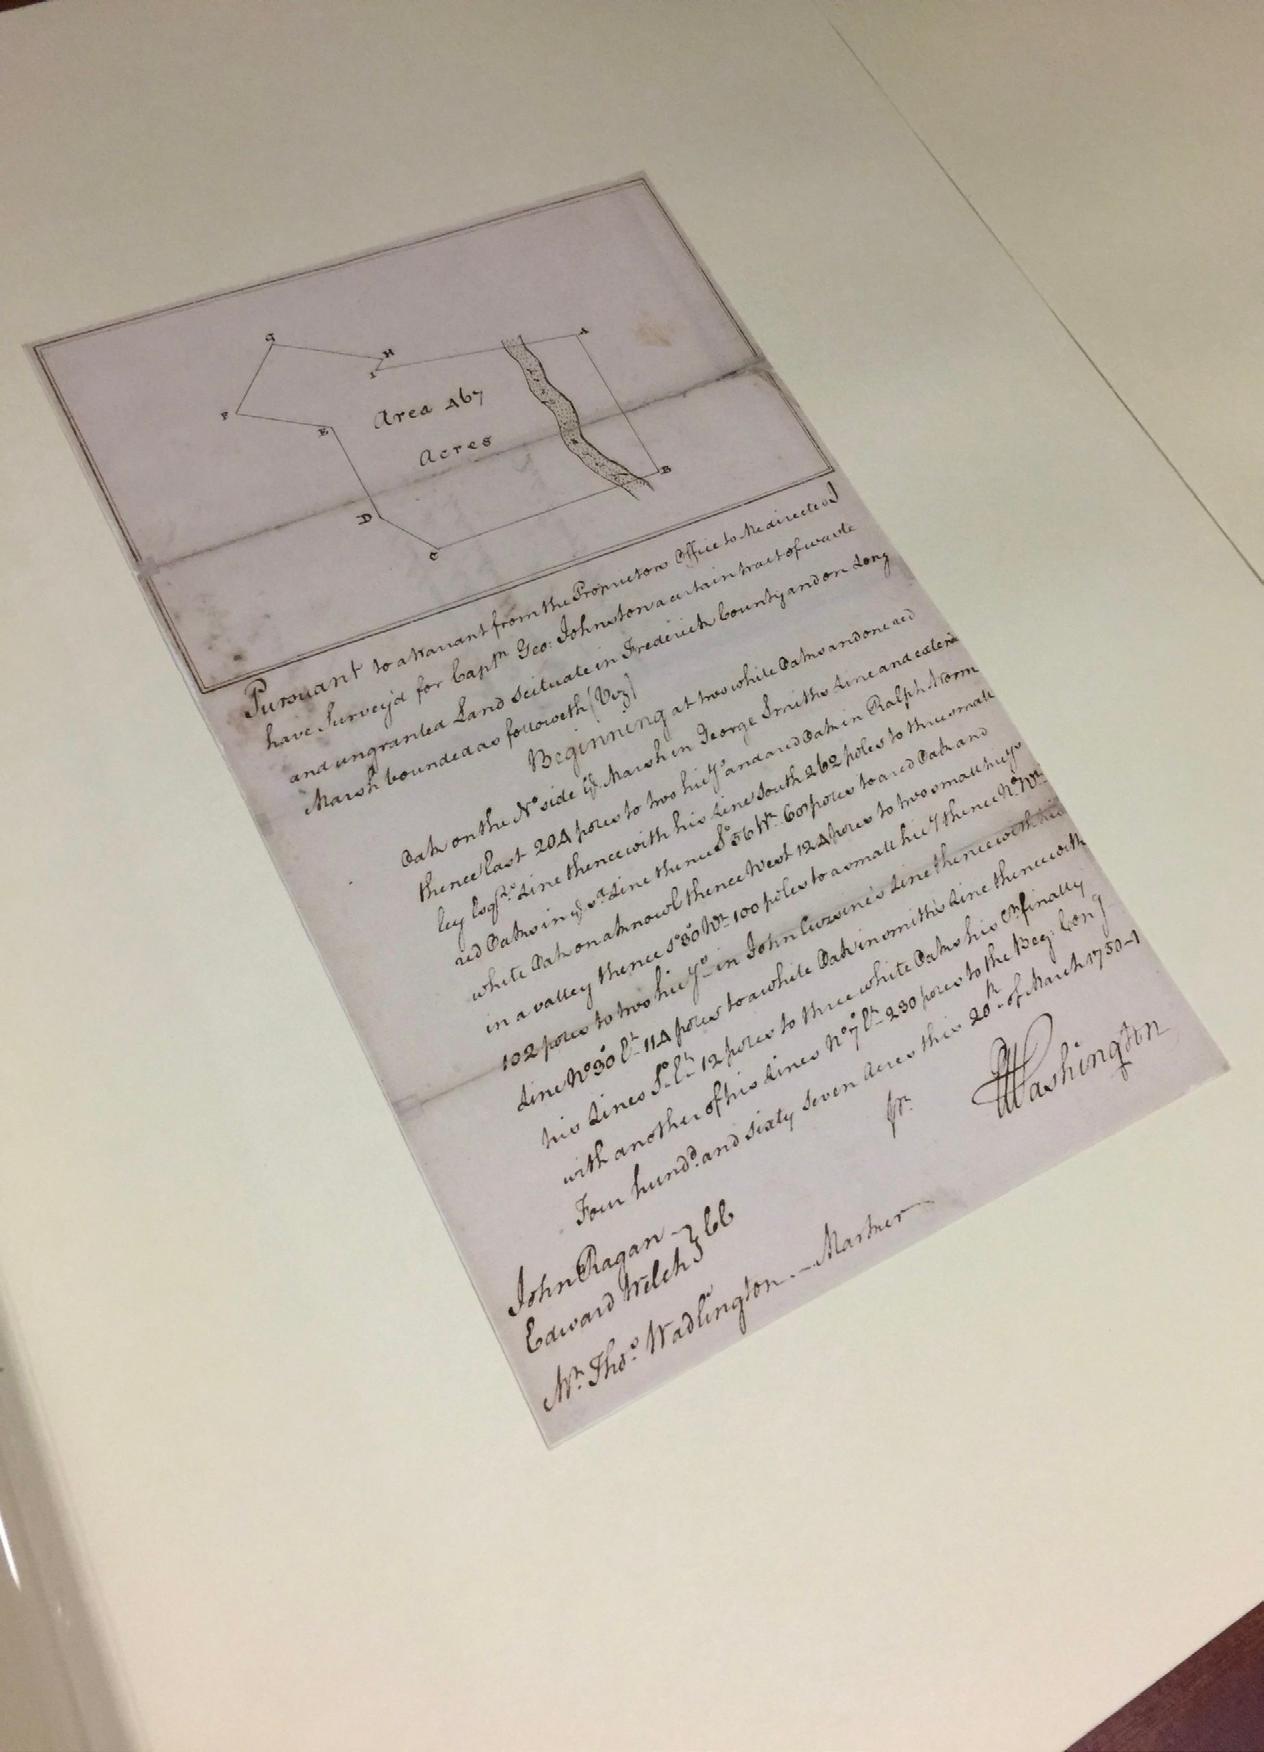 G
H
A
I
F
E
Area 467
Acres
B
D
C
Pursuant to a Warrant from the Proprietors Office to Me directed I
have Survey'd for Captn. Geo: Johnston a certain tract of waste
and ungranted Land scituate in Frederick County and on Long
Marsh bounded as followeth (Viz)
Beginning at two white Oaks and one red
Oak on the No. side ye. Marsh in George Smiths Line and extens
thence East 204 poles to two hicys. and a red Oak in Ralph Worm
ley Esqrs. Line thence with his Line South 262 poles to three small
red Oaks in ye. sd. Line thence So. 56 Wt. 60 poles to a red Oak and
white Oak on a knowl thence West 124 poles to two small hicys
in a valley thence So. 30 Wt. 100 poles to a small hicy. thence No. Wt.
102 poles to two hicys. in John Cozine's Line thence with his
Line No. 30 Et. 114 poles to a white Oak in Smith's Line thence with
his Lines So. Et. 12 poles to three white Oaks his Cr. finally
with another of his Lines No. 7 Et. 230 poles to the Beg: Cong
Four hundd. and sixty seven Acres this 20th. of March 1750-1
pr. GWashington
John Ragan } CC
Edward Welch
Mr. Thos. Wadlington — Marker